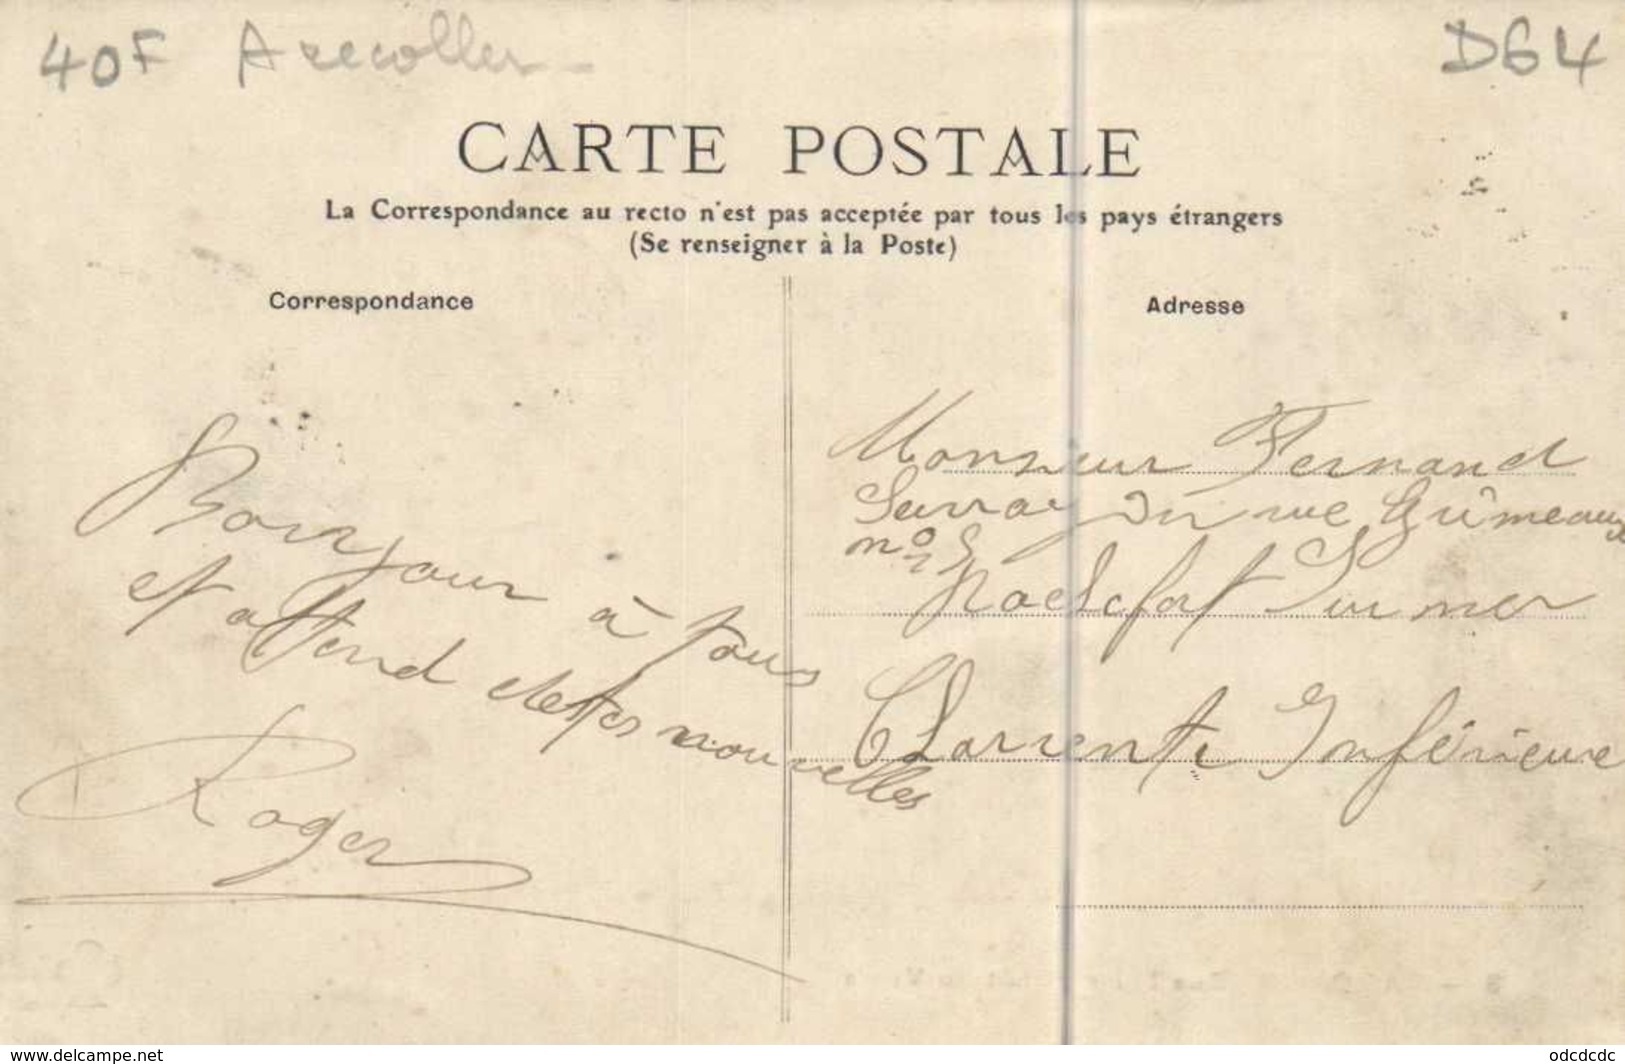 40F A recoller
D64
CARTE POSTALE
La Correspondance au recto n'est pas acceptée par tous les pays étrangers
(Se renseigner à la Poste)
Correspondance
Adresse
Bonjour à tous
et attend de tes nouvelles
Roger
Monsieur Fernand
rue Guimeaux
no 5
Rochefort Sur mer
Charente Inférieure
www.delcampe.net
odcdcdc